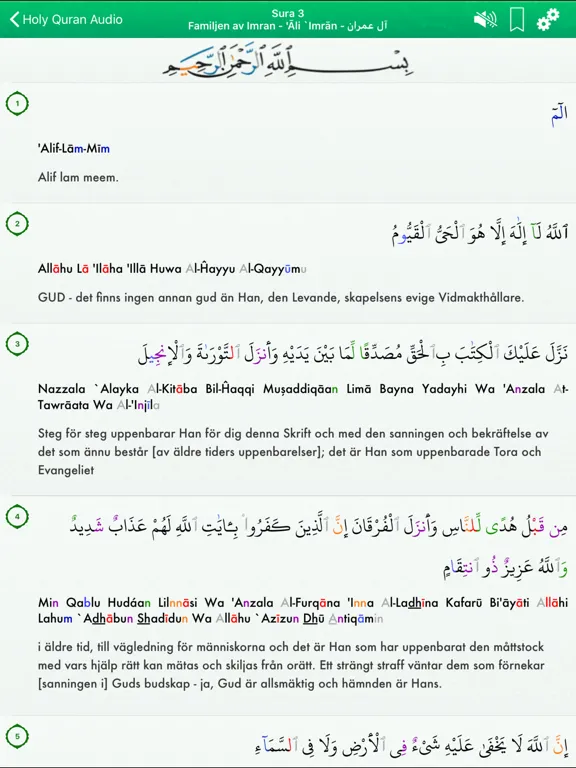 Holy Quran Audio
Sura 3
Familjen av Imran - 'Āli `Imrān - آل عمران
بِسْمِ ٱللَّهِ ٱلرَّحْمَٰنِ ٱلرَّحِيمِ
1
الٓمٓ
'Alif-Lām-Mīm
Alif lam meem.
2
ٱللَّهُ لَآ إِلَٰهَ إِلَّا هُوَ ٱلْحَىُّ ٱلْقَيُّومُ
Allāhu Lā 'Ilāha 'Illā Huwa Al-Ĥayyu Al-Qayyūmu
GUD - det finns ingen annan gud än Han, den Levande, skapelsens evige Vidmakthållare.
3
نَزَّلَ عَلَيْكَ ٱلْكِتَٰبَ بِٱلْحَقِّ مُصَدِّقًا لِّمَا بَيْنَ يَدَيْهِ وَأَنزَلَ ٱلتَّوْرَىٰةَ وَٱلْإِنجِيلَ
Nazzala `Alayka Al-Kitāba Bil-Ĥaqqi Muşaddiqāan Limā Bayna Yadayhi Wa 'Anzala At-
Tawrāata Wa Al-'Injīla
Steg för steg uppenbarar Han för dig denna Skrift och med den sanningen och bekräftelse av
det som ännu består [av äldre tiders uppenbarelser]; det är Han som uppenbarade Tora och
Evangeliet
4
مِن قَبْلُ هُدًى لِّلنَّاسِ وَأَنزَلَ ٱلْفُرْقَانَ إِنَّ ٱلَّذِينَ كَفَرُوا۟ بِـَٔايَٰتِ ٱللَّهِ لَهُمْ عَذَابٌ شَدِيدٌ
وَٱللَّهُ عَزِيزٌ ذُو ٱنتِقَامٍ
Min Qablu Hudáan Lilnnāsi Wa 'Anzala Al-Furqāna 'Inna Al-Ladhīna Kafarū Bi'āyāti Allāhi
Lahum `Adhābun Shadīdun Wa Allāhu `Azīzun Dhū Antiqāmin
i äldre tid, till vägledning för människorna och det är Han som har uppenbarat den måttstock
med vars hjälp rätt kan mätas och skiljas från orätt. Ett strängt straff väntar dem som förnekar
[sanningen i] Guds budskap - ja, Gud är allsmäktig och hämnden är Hans.
5
إِنَّ ٱللَّهَ لَا يَخْفَىٰ عَلَيْهِ شَىْءٌ فِى ٱلْأَرْضِ وَلَا فِى ٱلسَّمَآءِ